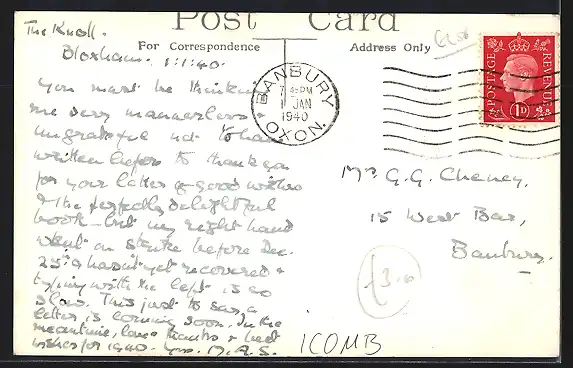 Post Card
The Knoll.
Bloxham. 1:1:40.
For Correspondence
Address Only
£2.50
BANBURY
7 45 PM
1 JAN
1940
OXON.
POSTAGE
REVENUE
1D
You must be thinking
me very mannerless
ungrateful not to have
written before to thank you
for your letter & good wishes
& the perfectly delightful
book - but my right hand
went on strike before Dec.
25th & hasn't yet recovered &
typing with the left is so
slow. This just to say a
letter is coming soon. In the
meantime, love thanks & best
wishes for 1940. Yrs. M.A.S.
Mr G. G. Cheney,
15 West Bar,
Banbury.
£3.00
ICOMB